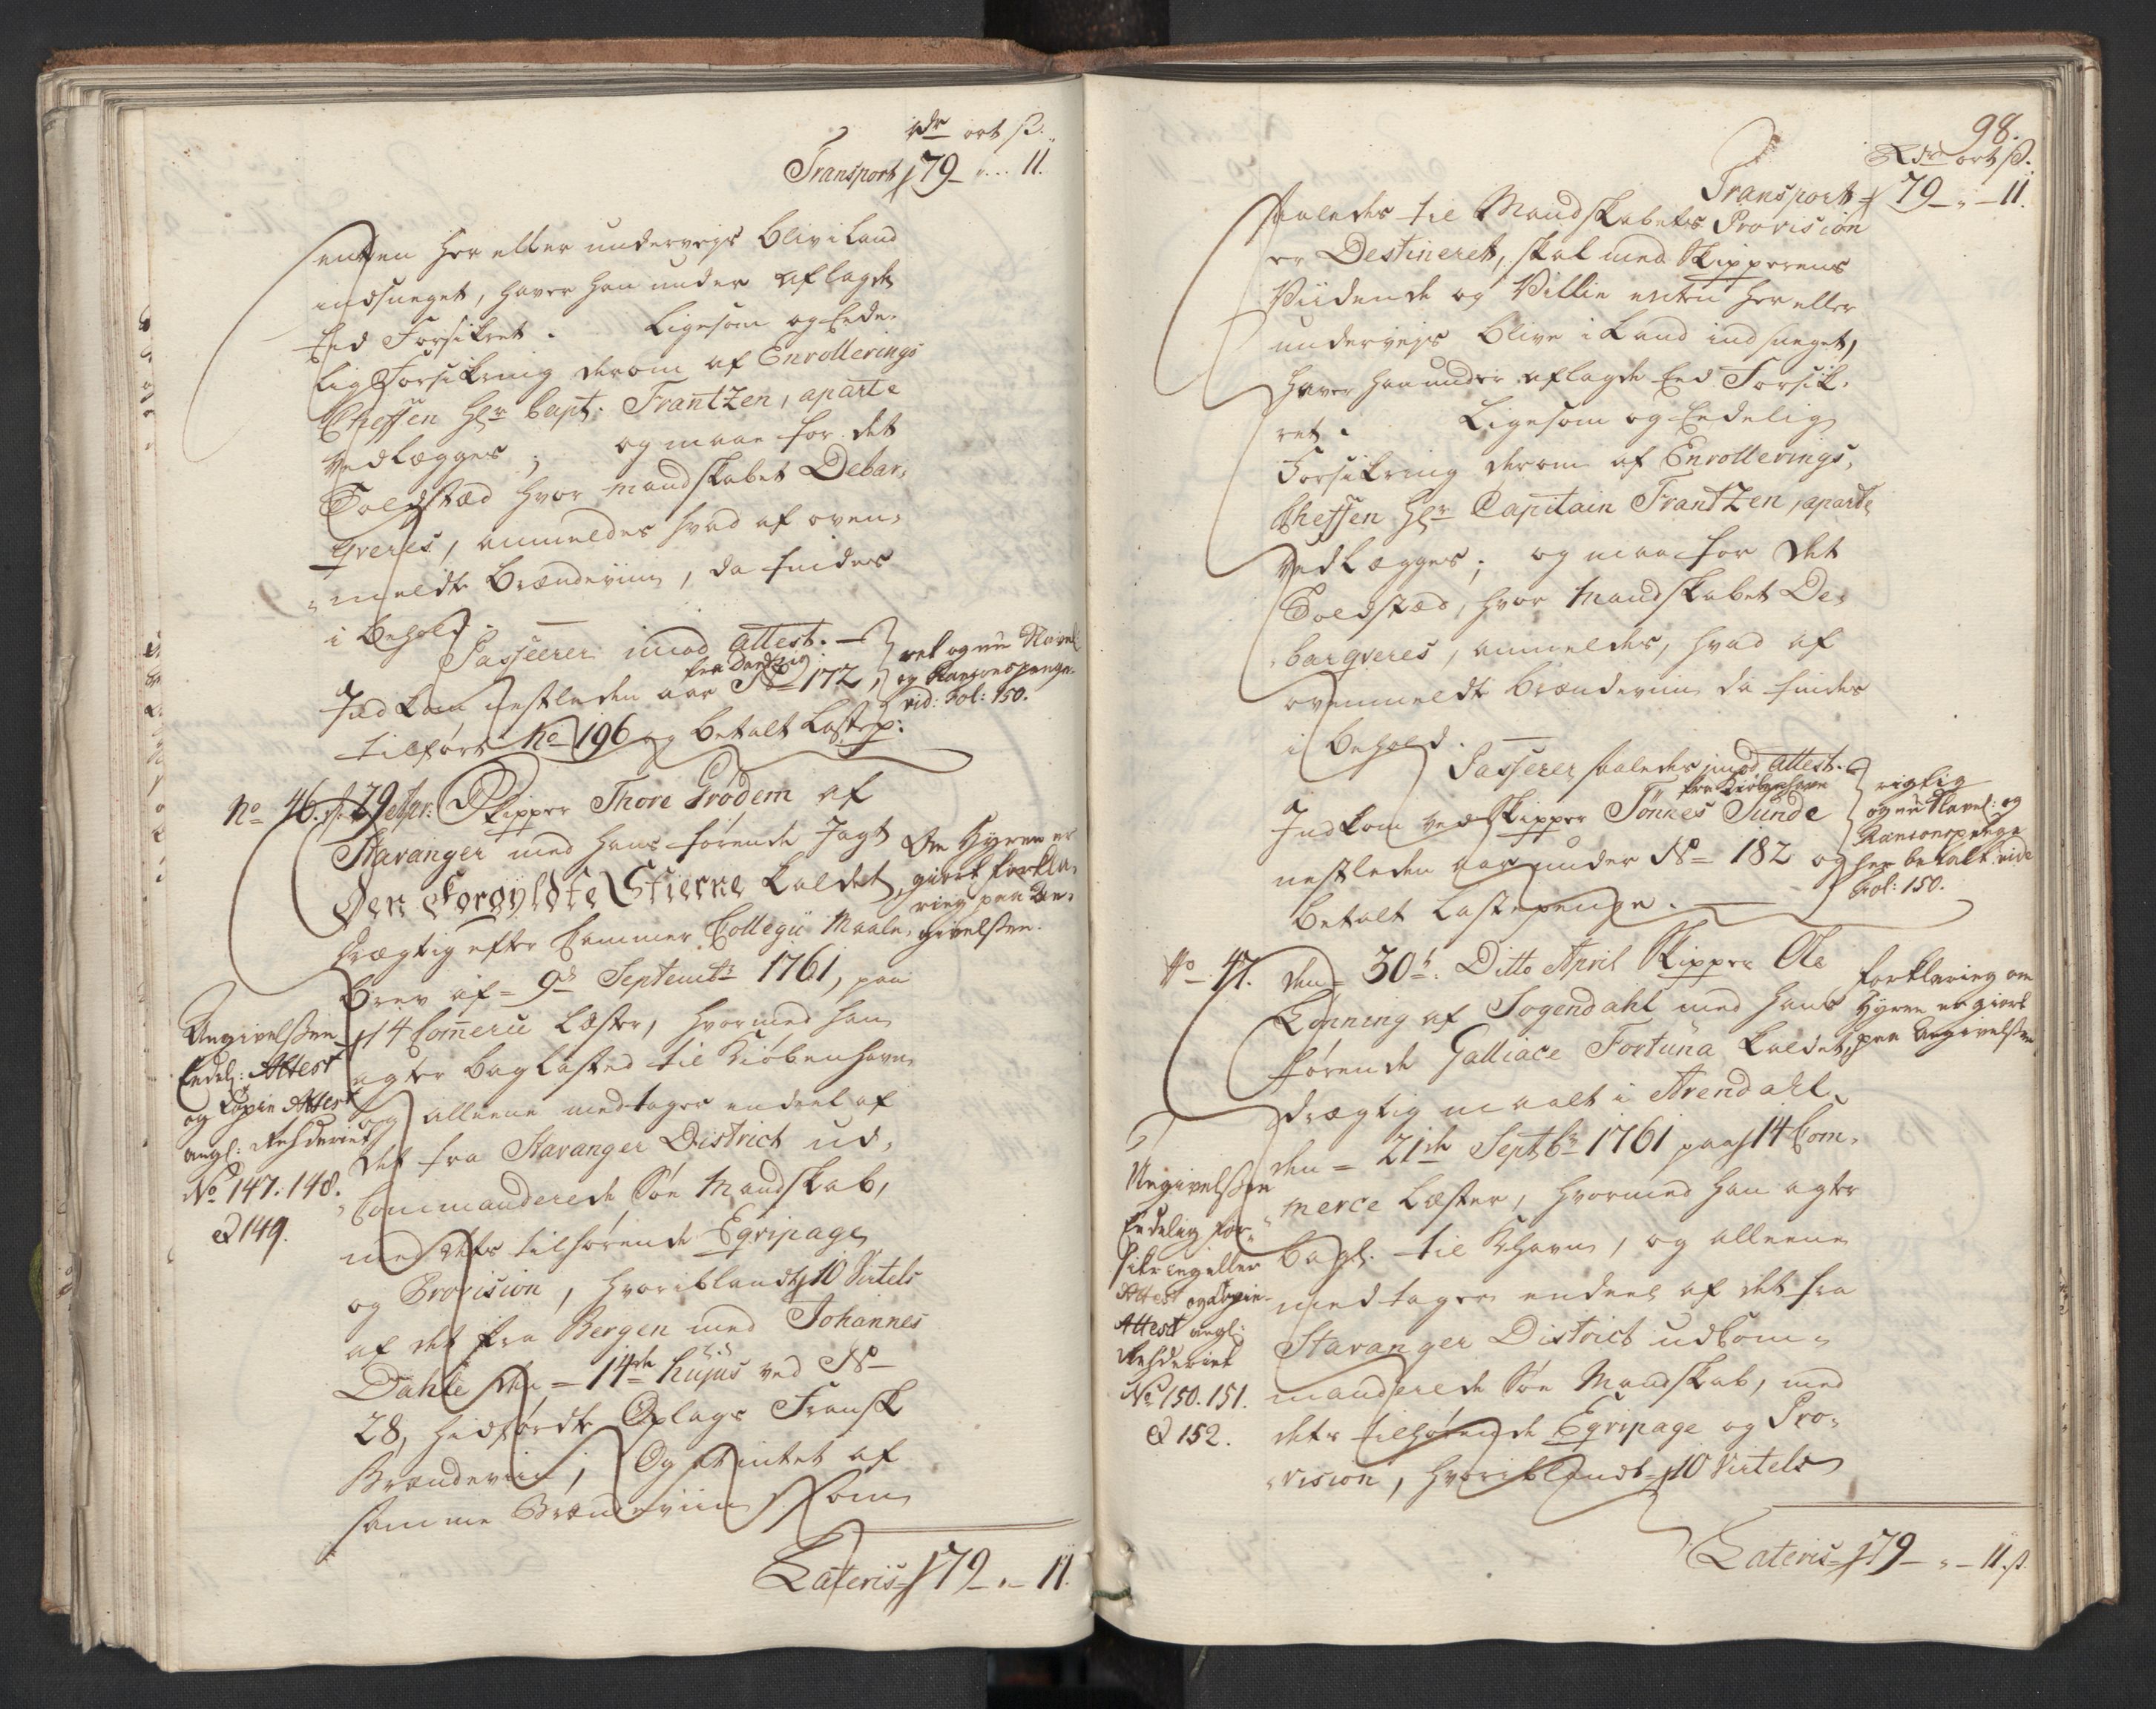 rdr ort s.
Transport 79 - " ... 11.
enten her eller underveigs blive i Land
indsneget, haver han under aflagde
Eed Forsikret. Ligesom og Eede-
lig Forsikring derom af Enrollerings
Cheffen Hr Capt: Frantzen, aparte
vedlægges; og maae for det
Toldsted hvor mandskabet Debar-
qveres, anmeldes hvad af oven-
meldte Brændeviin, da findes
i behold.
Passerer imod attest.
fra Dandzig
Indkom nestleden aar No 172,
tilført No 196 og betalt Lastep:
ret og nu Slavel
og Ranzonspenge
vid: Fol: 150.
No 46. d. 29 Apr: Skipper Thore Grødem af
Stavanger med hans førende Jagt
Den Forgyldte Stierne kaldet,
drægtig efter Cammer Collegii Maale-
brev af 9de Septembr 1761, paa
14 Comerce Læster, hvormed han
agter baglasted til Kiøbenhavn
og alleene medtager endeel af
det fra Stavanger District ud-
Commanderede Søe Mandskab,
med dets tilhørende Eqvipage
og Provision, hvoriblandt 10 Virtels
af det fra Bergen med Johannes
Dahle den 14de hujus ved No
28, hidførdte Oplags Fransk
Brændeviin; Og at intet af
samme Brændeviin som
Om Hyren er
giort forkla-
ring paa An-
givelsen.
Angivelsen
Eedel: Attest
og Copie Attest
angl: Rehderiet
No 147: 148.
& 149.
Lateris 79 - " - 11.
98.
Rdr ort s.
Transport 79 - " - 11.
saaledes til Mandskabets Provision
er Destineret, skal med Skipperens
Viidende og Villie enten her eller
underveigs blive i Land indsneget,
haver han under aflagde Eed Forsik-
ret. Ligesom og Eedelig
Forsikring derom af Enrollerings-
Cheffen Hr Capitain Frantzen, aparte
vedlægges; og maae for det
Toldsted, hvor Mandskabet De-
barqveres, anmeldes, hvad af
ovenmeldte Brændeviin da findes
i Behold.
Passerer saaledes imod attest.
fra Kiøbenhavn
Indkom ved Skipper Tønnes Sunde
nestleden aar under No 182 og
betalt Lastepenge.
rigtig
og nu Slavel: og
Ranzonspenge
her betalt vide
Fol: 150.
No 47. den 30te Ditto April Skipper Ole
Lønning af Sogendahl med hans
førende Galliace Fortuna kaldet,
drægtig maalt i Arendahl
den 21de Septbr 1761 paa 14 Com-
merce Læster, hvormed han agter
bagl. til Khavn, og alleene
medtager endeel af det fra
Stavanger District udkom-
manderede Søe Mandskab, med
dets tilhørende Eqvipage og Pro-
vision, hvoriblandt 10 Virtels
forklaring om
Hyren er giort
paa Angivelsen
Angivelsen
Eedelig for-
sikring eller
Attest og Copie
Attest angl:
Rehderiet
No 150. 151.
& 152.
Lateris 79 - " - 11 s.